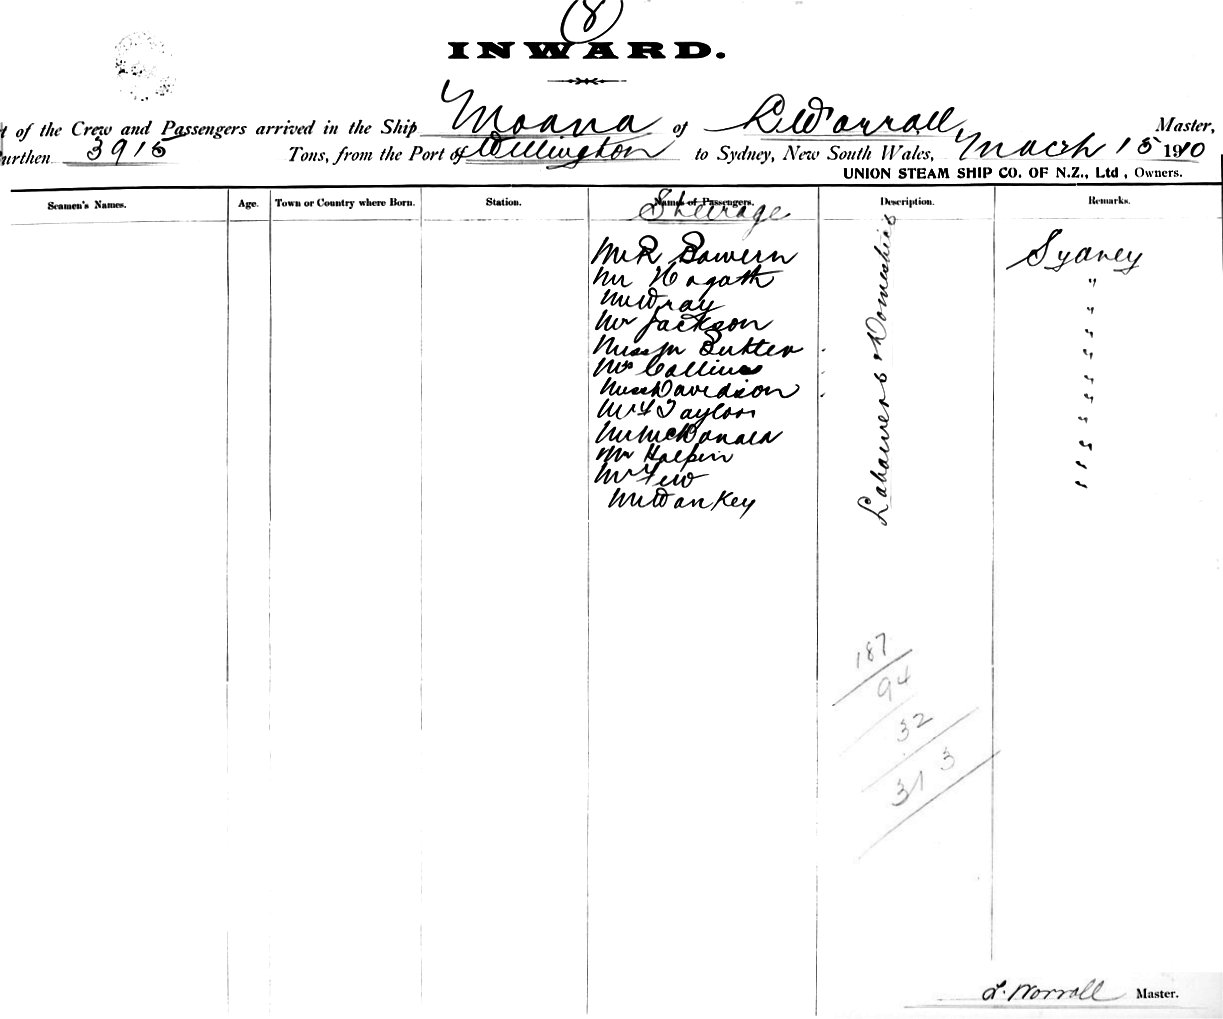 (8)
INWARD.
t of the Crew and Passengers arrived in the Ship Moana of L. Worrall, Master,
urthen 3915 Tons, from the Port of Wellington to Sydney, New South Wales, March 15 1910
UNION STEAM SHIP CO. OF N.Z., Ltd, Owners.
Seamen's Names. Age. Town or Country where Born. Station. Names of Passengers. Description. Remarks.
Steerage
Mr R Bowern Sydney
Mr Hogath "
Mr Wray "
Mr Jackson "
Miss M Butler "
Mrs Collins "
Miss Davidson "
Mr F Taylor "
Mr McDonald "
Mr Halpin "
Mr Few "
Mr Wankey
Labourers & Domestics
187
94
32
313
L. Worrall Master.